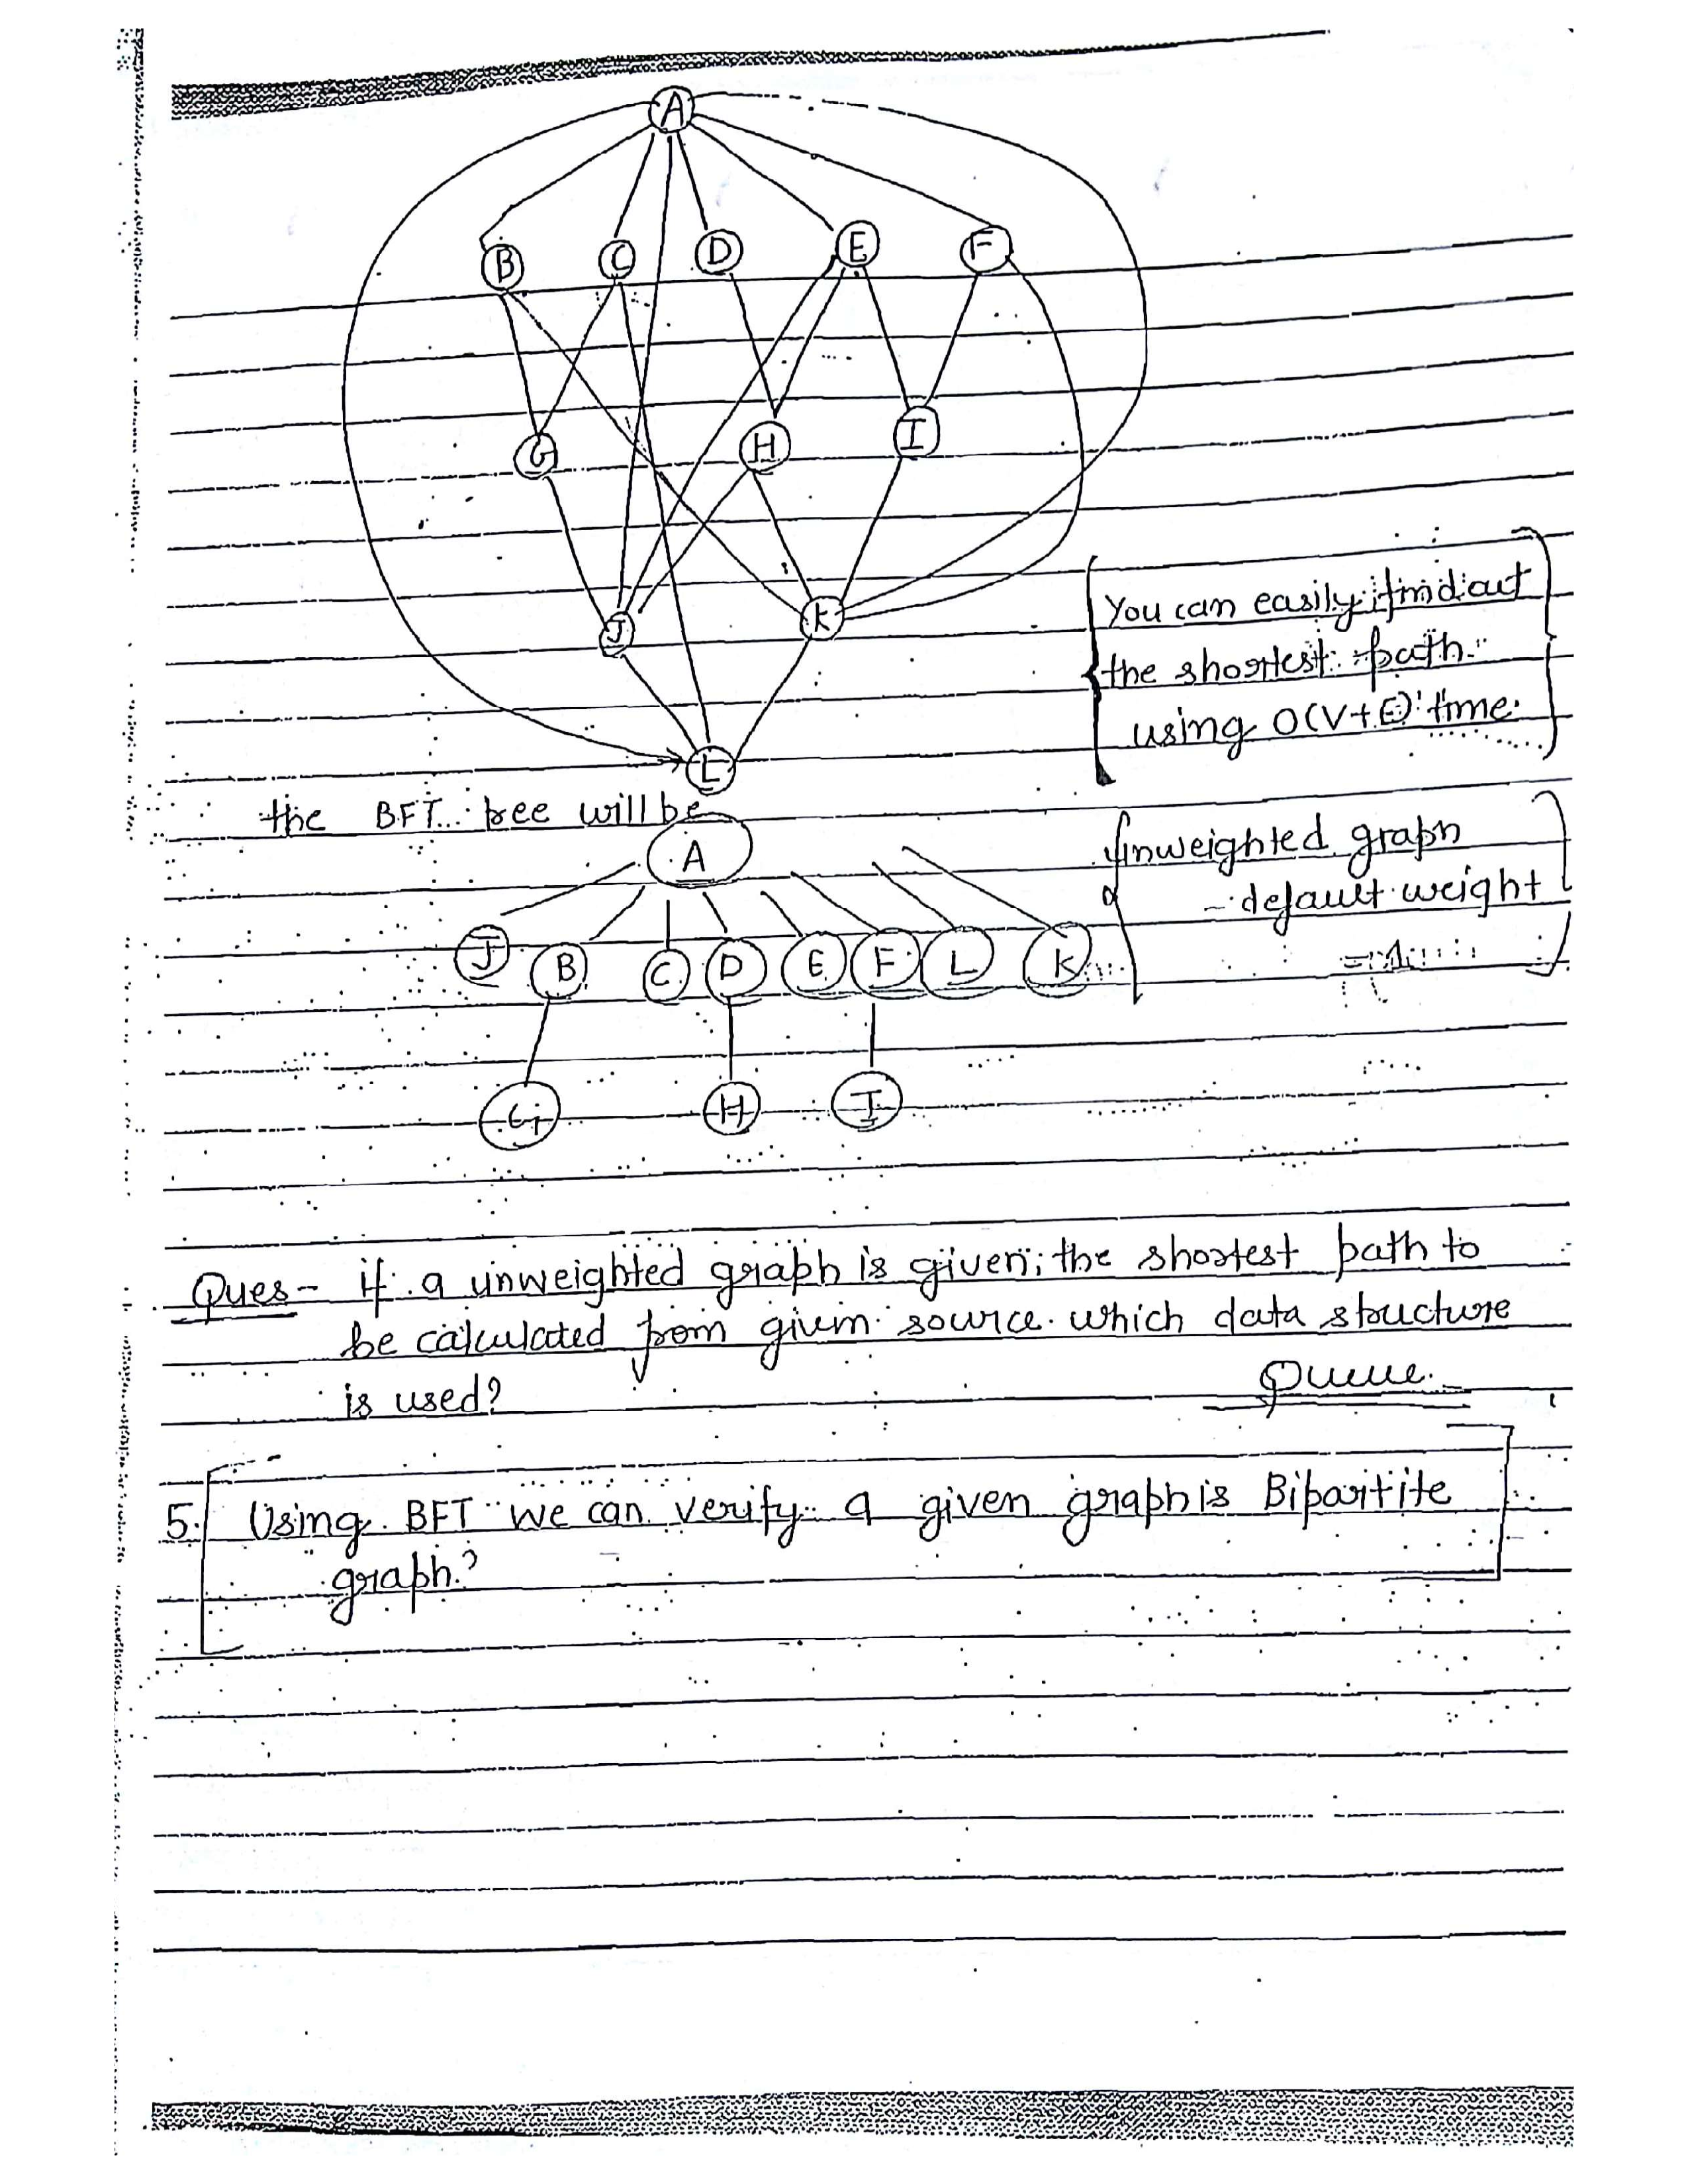 A
B C D E F
G H I
J K
L
You can easily find out
the shortest path
using O(V+E) time.
the BFT tree will be
A
Unweighted graph
- default weight
J B C D E F L K
G H I
Ques - if a unweighted graph is given; the shortest path to
be calculated from given source which data structure
is used?
Queue.
5. Using BFT we can verify a given graph is Bipartite
graph?